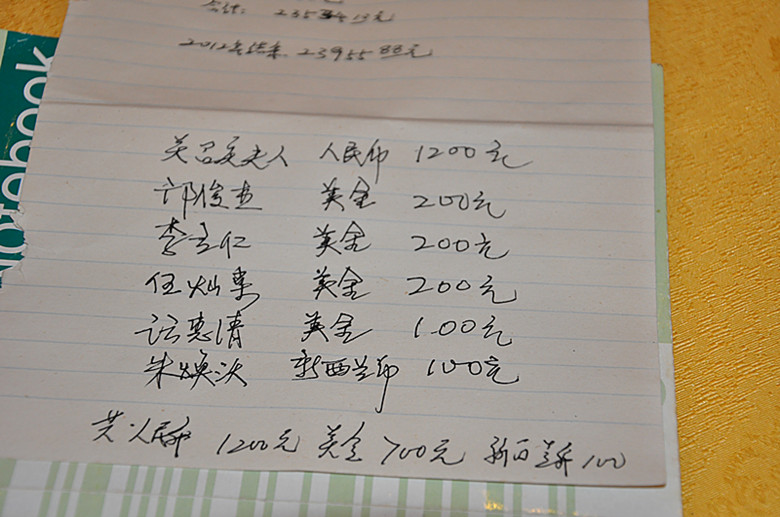 合计: 235 13元
2012年结余 2395588元
Notebook
夫人 人民币 1200元
邝俊 美金 200元
李 仁 美金 200元
伍灿 美金 200元
惠清 美金 100元
朱焕 新西兰币 100元
共:人民币 1200元 美金 700元 新西兰币 100